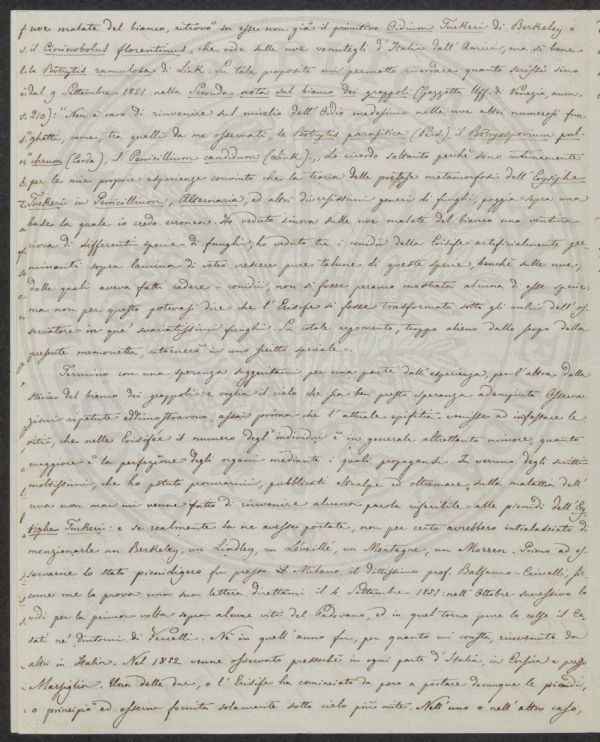 uve malate del bianco, ritrovò su esse non già il primitivo Oidium Tuckeri di Berkeley o
il Cicinobolus florentinus, che vide sulle uve venutegli d'Italia dall'Amici, ma si bene
la Botrytis ramulosa di Link. Su tale proposito mi permetto ricordare quanto scrissi sino
dal 9 Settembre 1851 nella Seconda nota sul bianco dei grappoli (Gazzetta Uff. di Venezia, num.
210): "Non è raro di rinvenire sul micelio dell'Oidio medesimo nelle uve altri numerosi fun-
"ghetti, come, tra quelli da me osservati, la Botrytis parasitica (Pers.) il Botryosporium pul-
"chrum (Corda), il Penicillium candidum (Link)„. Lo ricordo soltanto perchè sono intimamente
per le mie proprie esperienze convinto che la teoria delle pretese metamorfosi dell'Erysiphe
Tuckeri in Penicillium, Alternaria, ed altri diversissimi generi di funghi, poggia sopra una
base la quale io credo erronea. Ho veduto sinora sulle uve malate del bianco una ventina
circa di differenti specie di funghi; ho veduto tra i conidii della Erisife artificialmente ger
minanti sopra lamina di vetro crescere pure talune di queste specie, benchè sulle uve,
dalle quali aveva fatti cadere i conidii, non si fosse peranco mostrata alcuna di esse specie:
ma non per questo potevasi dire che l'Erisife si fosse trasformata sotto gli occhi dell'os-
servatore in que' svariatissimi funghi. Su cotale argomento, troppo alieno dallo scopo della
presente memorietta, ritornerò in uno scritto speciale.
Termino con una speranza suggeritami per una parte dall'esperienza, per l'altra dalla
storia del bianco dei grappoli: e voglia il cielo che sia ben presto speranza adempiuta. Osserva-
zioni ripetute addimostrarono, assai prima che l'attuale epifitia venisse a infestare le
viti, che nelle Erisifée il numero degl'individui è in generale altrettanto minore, quanto
maggiore è la perfezione degli organi mediante i quali propagansi. In veruno degli scritti
moltissimi, che ho potuto procurarmi, pubblicati oltralpe ed oltremare sulla malattia dell'
uva non mai mi venne fatto di rinvenire alcuna parola riferibile alle picnidi dell'Ery
siphe Tuckeri: e se realmente la ne avesse portate, non per certo avrebbero intralasciato di
menzionarle un Berkeley, un Lindley, un Léveillé, un Montagne, un Morren. Primo ad os-
servarne lo stato picnidigero fu presso Milano il dottissimo prof. Balsamo-Crivelli, sic-
come me lo prova una sua lettera direttami il 4 Settembre 1851: nell'Ottobre successivo lo
vidi per la prima volta sopra alcune viti del Padovano, ed in quel torno pure lo colse il Ce-
sati ne' dintorni di Vercelli. Nè in quell'anno fu, per quanto mi consta, rinvenuto da
altri in Italia. Nel 1852 venne osservato pressochè in ogni parte d'Italia, in e presso
Marsiglia. Una delle due, o l'Erisife ha cominciato da poco a portare dovunque le picnidi,
o principiò ad esserne fornita solamente sotto cielo più mite. Nell'uno o nell'altro caso,